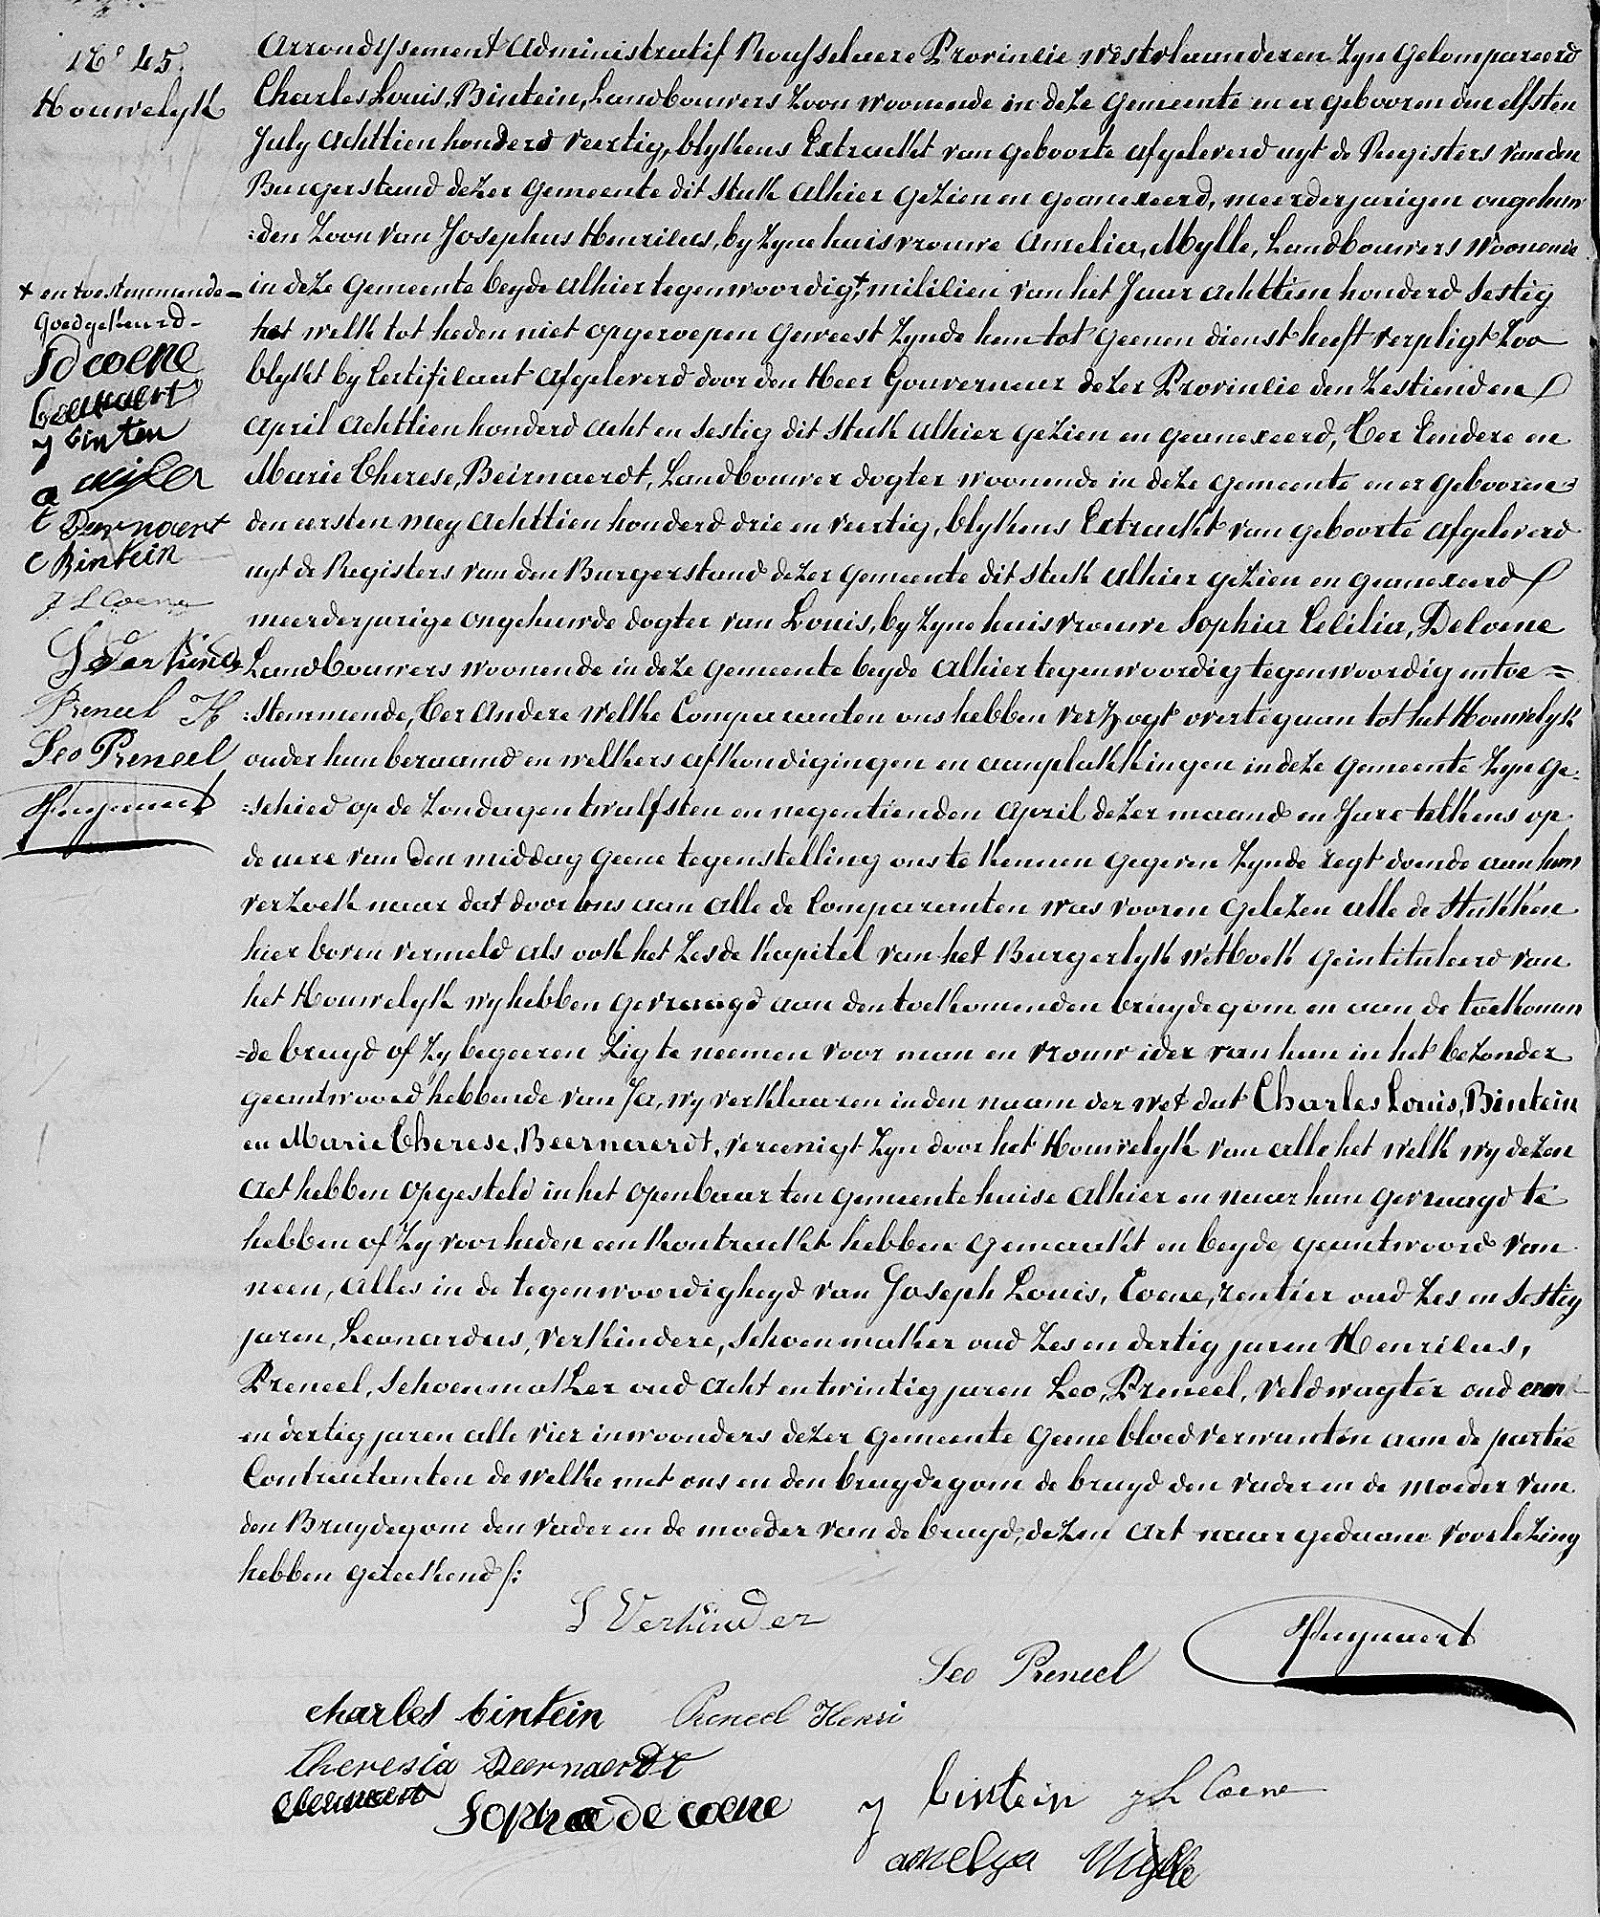 N° 45.
Houwelyk
Arrondyssement Administratif Rousselaere Provincie Westvlaanderen Zyn Gecompareerd
Charles Louis, Bintein, Landbouwers Zoon woonende in deze Gemeente en er gebooren den elfsten
July Achttien honderd veertig, blykens Extrackt van geboorte afgeleverd uyt de Registers van den
Burgerstand dezer Gemeente dit stuk alhier gezien en geannexeerd, meerderjarigen ongehuw
:den Zoon van Josephus Henricus, by Zyne huisvrouwe Amelia, Mylle, Landbouwers woonende
in deze Gemeente beyde alhier tegenwoordig + milicien van het Jaar achttien honderd sestig
het welk tot heden niet opgeroepen geweest Zynde hem tot geenen dienst heeft verpligt Zoo
blykt by Certificaat afgeleverd door den Heer Gouverneur dezer Provincie den Zestienden
April Achttien honderd acht en sestig dit stuk alhier gezien en geannexeerd, Ter Eendere en
Marie Therese, Beirnaerdt, Landbouwer dogter woonende in deze gemeente en er gebooren
den eersten mey Achttien honderd drie en veertig, blykens Extrackt van geboorte afgeleverd
uyt de Registers van den Burgerstand dezer gemeente dit stuk alhier gezien en geannexeerd
meerderjarige ongehuwde dogter van Louis, by Zyne huisvrouwe Sophia Cecilia, Decoene
Landbouwers woonende in deze gemeente beyde alhier tegenwoordig tegenwoordig en toe=
:stemmende, Ter Andere welke Comparanten ons hebben verzogt overtegaan tot het Houwelyk
onder hun beraamd en welkers afkondigingen en aanplakkingen in deze gemeente Zyn ge:
:schied op de Zondagen twalfsten en negentienden April dezer maand en Jare telkens op
de uere van den middag geene tegenstelling ons te kennen gegeven Zynde regt doende aan hun
verzoek naar dat door ons aan alle de Comparanten was vooren gelezen alle de stukken
hier boven vermeld als ook het Zesde Kapitel van het Burgerlyk Wetboek geintituleerd van
het Houwelyk wy hebben gevraagd aan den toekomenden bruydegom en aan de toekomen
=de bruyd of Zy begeeren Zig te neemen voor man en vrouw ider van hun in het bezonder
geantwoord hebbende van Ja, wy verklaaren in den naam der wet dat Charles Louis, Bintein
en Marie Therese, Beernaerdt, vereenigt Zyn door het Houwelyk van alle het welk wy dezen
Act hebben opgesteld in het openbaar ten gemeente huise alhier en naar hun gevraagd te
hebben of Zy voor heden een Kontrackt hebben gemaakt en beyde geantwoord van
neen, Alles in de tegenwoordigheyd van Joseph Louis, Coene, rentier oud Zes en sestig
jaren, Leonardus, Verkindere, schoenmaker oud Zes en dertig jaren Henricus,
Preneel, schoenmaker oud acht en twintig jaren Leo, Preneel, veldwagter oud een
en dertig jaren alle vier inwoonders dezer gemeente geene bloedverwanten aan de partie
Contractanten de welke met ons en den bruydegom de bruyd den vader en de moeder van
den Bruydegom den vader en de moeder van de bruyd, dezen Act naar gedaane voorlezing
hebben geteekend /:
+ en toestemmende
Goedgekeurd
S d coene
Beernaert
J bintein
a mylle
t Beernaert
C Bintein
J L Coene
L Verkinder
Preneel H
Leo Preneel
L Verkinder
Leo Preneel
charles bintein
Preneel Henri
theresia Beernaerdt
Beernaert
Sophia de coene
J bintein
J L Coene
amelya Mylle